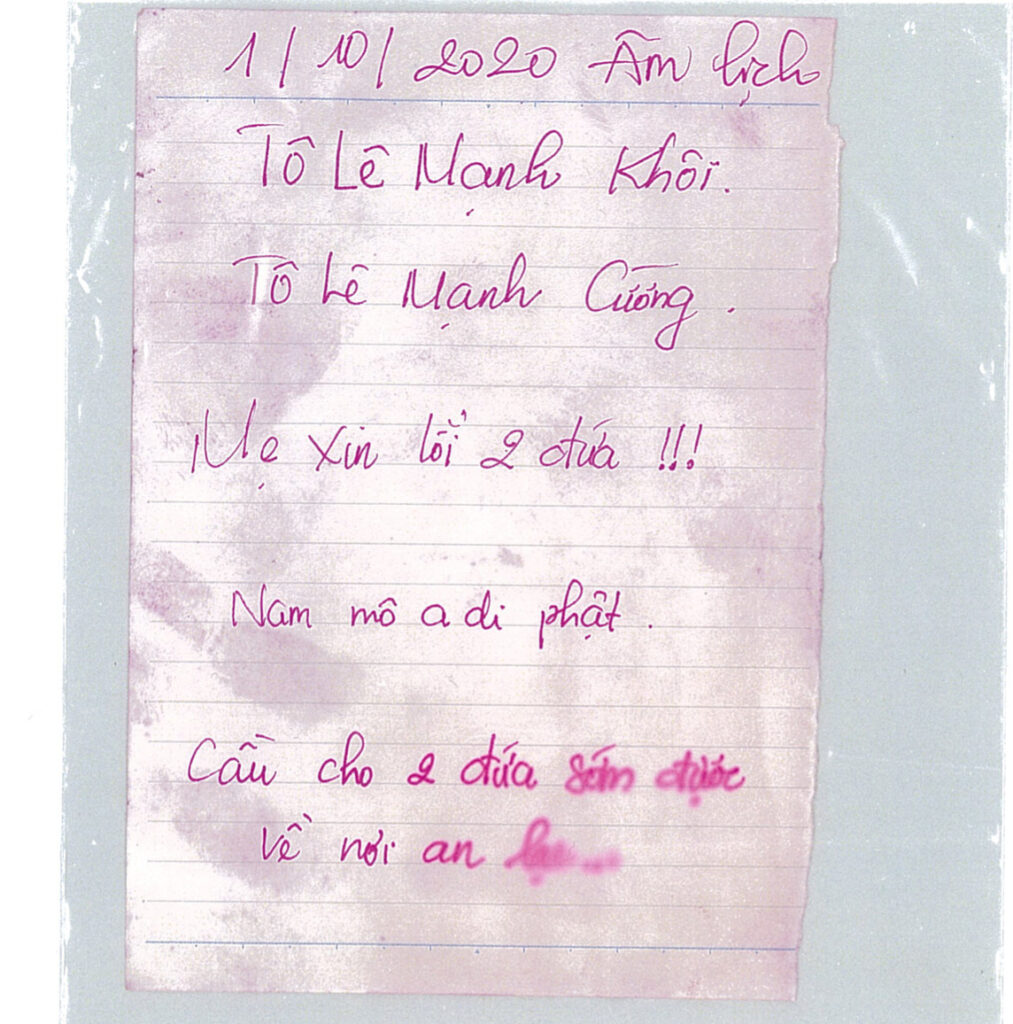 1/10/2020 Âm lịch
Tô Lê Mạnh Khôi.
Tô Lê Mạnh Cường.
Mẹ xin lỗi 2 đứa !!!
Nam mô a di phật.
Cầu cho 2 đứa sớm được
về nơi an